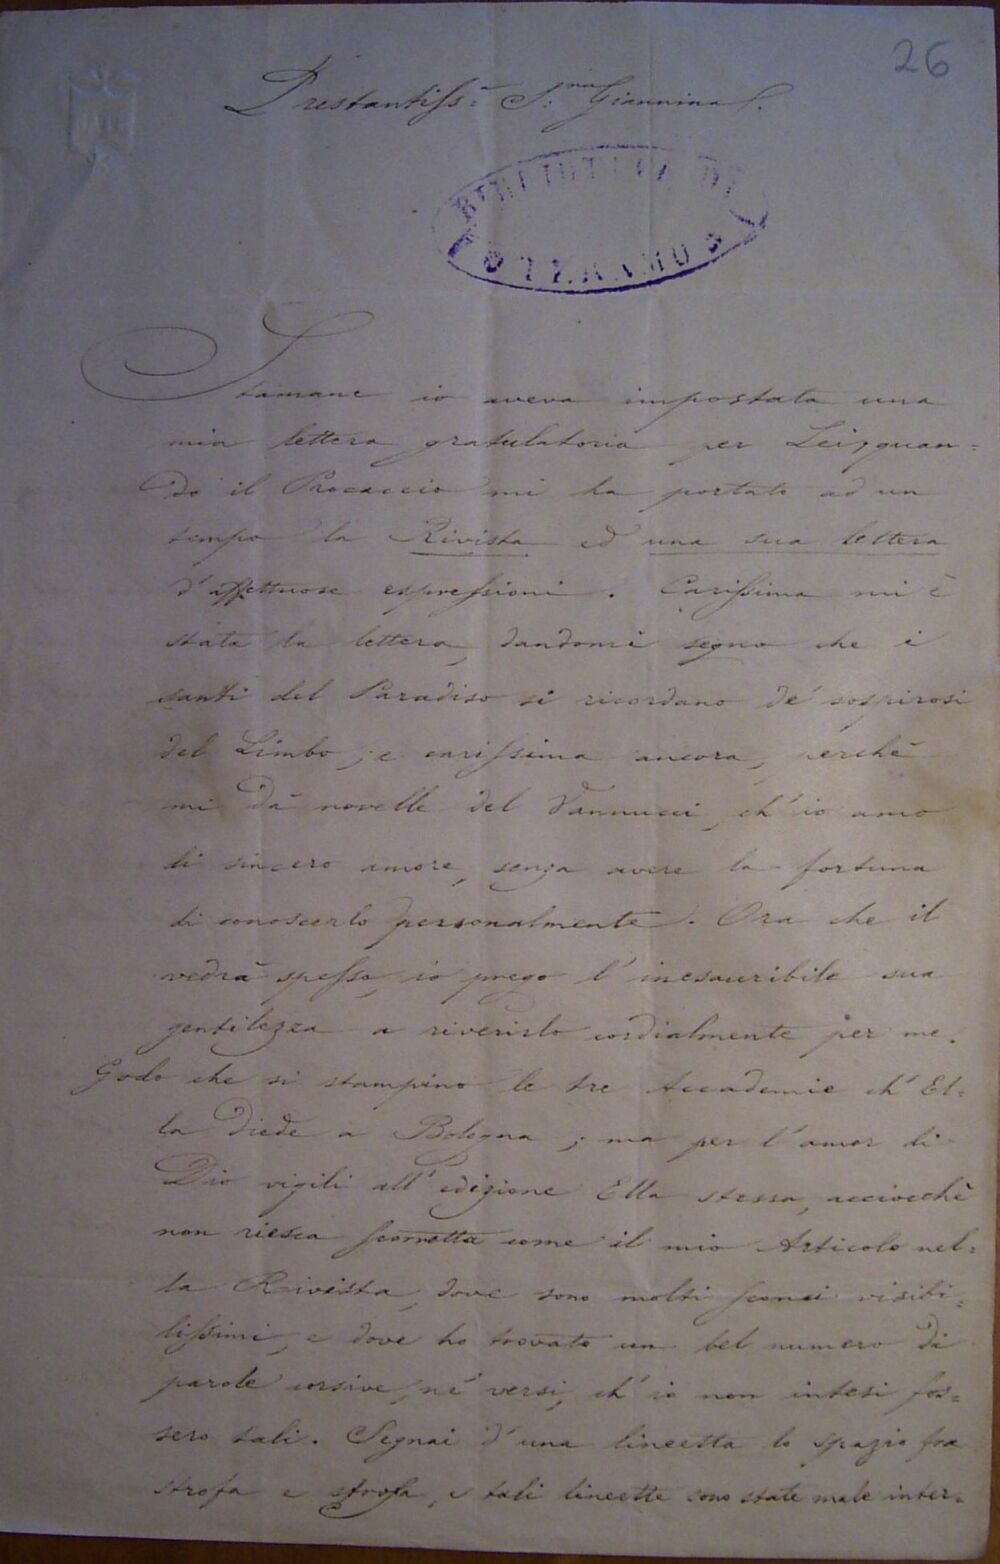 26
Prestantiss.ᵃ S.ʳⁱⁿᵃ Giannina S.
BIBLIOTECA DI
TERAMO
Stamane io aveva impostata una
mia lettera gratulatoria per Lei, quan=
do il Procaccio mi ha portato ad un
tempo la Rivista ed una sua lettera
d'affettuose espressioni. Carissima mi è
stata la lettera, dandomi segno che i
santi del Paradiso si ricordano de' sospirosi
del Limbo; e carissima ancora, perchè
mi dà novelle del Vannucci, ch'io amo
di sincero amore, senza avere la fortuna
di conoscerlo personalmente. Ora che il
vedrà spesso, io prego l'inesauribile sua
gentilezza a riverirlo cordialmente per me.
Godo che si stampino le tre Accademie ch'El=
la diede a Bologna; ma per l'amor di
Dio vigili all'edizione Ella stessa, acciocchè
non riesca scorretta come il mio Articolo nel=
la Rivista, dove sono molti sconci visibi=
lissimi, e dove ho trovato un bel numero di
parole corsive, ne' versi, ch'io non intesi fos=
sero tali. Segnai d'una lineetta lo spazio fra
strofa e strofa, e tali lineette sono state male inter=